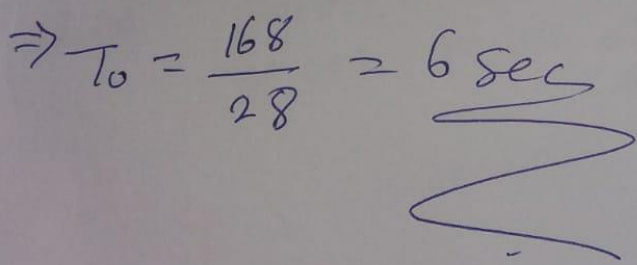 ⇒ T₀ = 168/28 = 6 sec